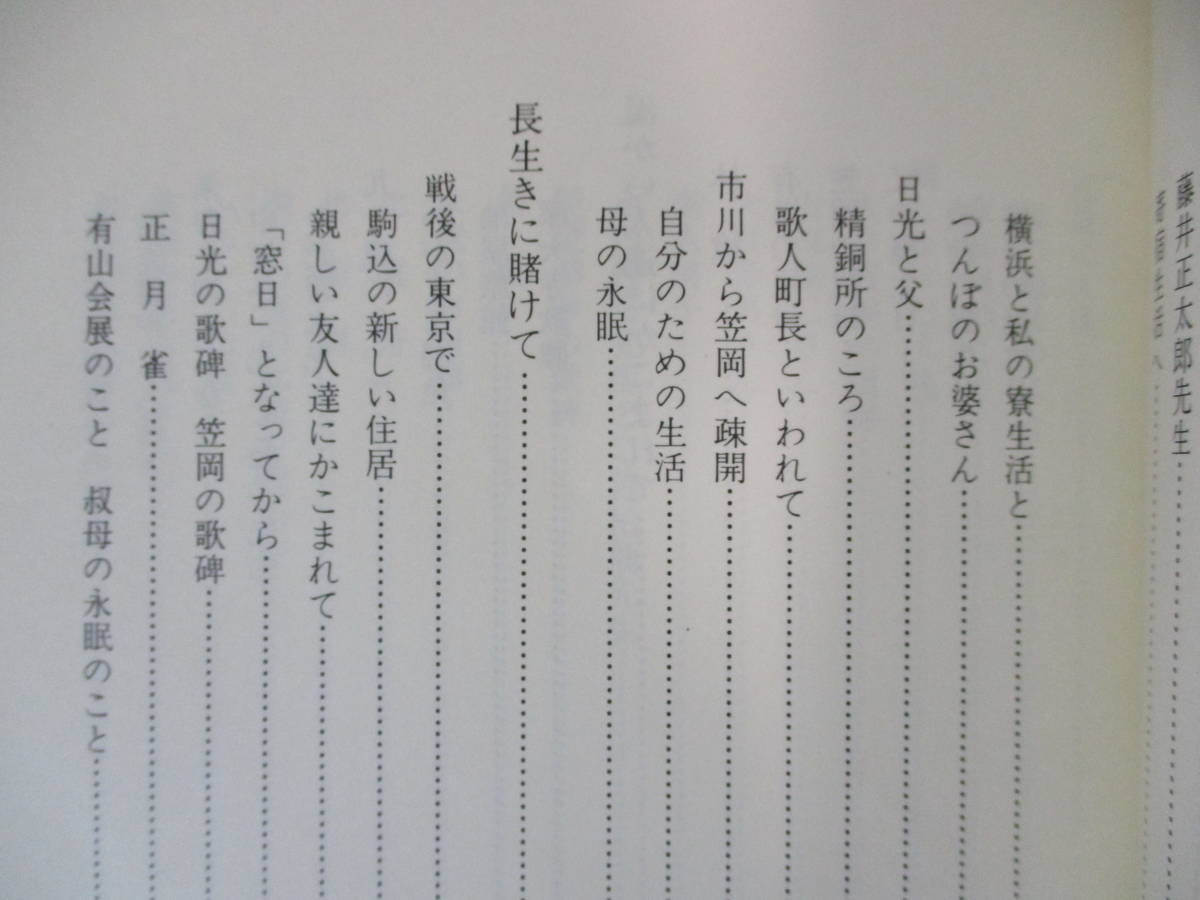 藤井正太郎先生
横浜と私の寮生活と
つんぼのお婆さん
日光と父
精銅所のころ
歌人町長といわれて
市川から笠岡へ疎開
自分のための生活
母の永眠
長生きに賭けて
戦後の東京で
駒込の新しい住居
親しい友人達にかこまれて
「窓日」となってから
日光の歌碑　笠岡の歌碑
正月雀
有山会展のこと　叔母の永眠のこと